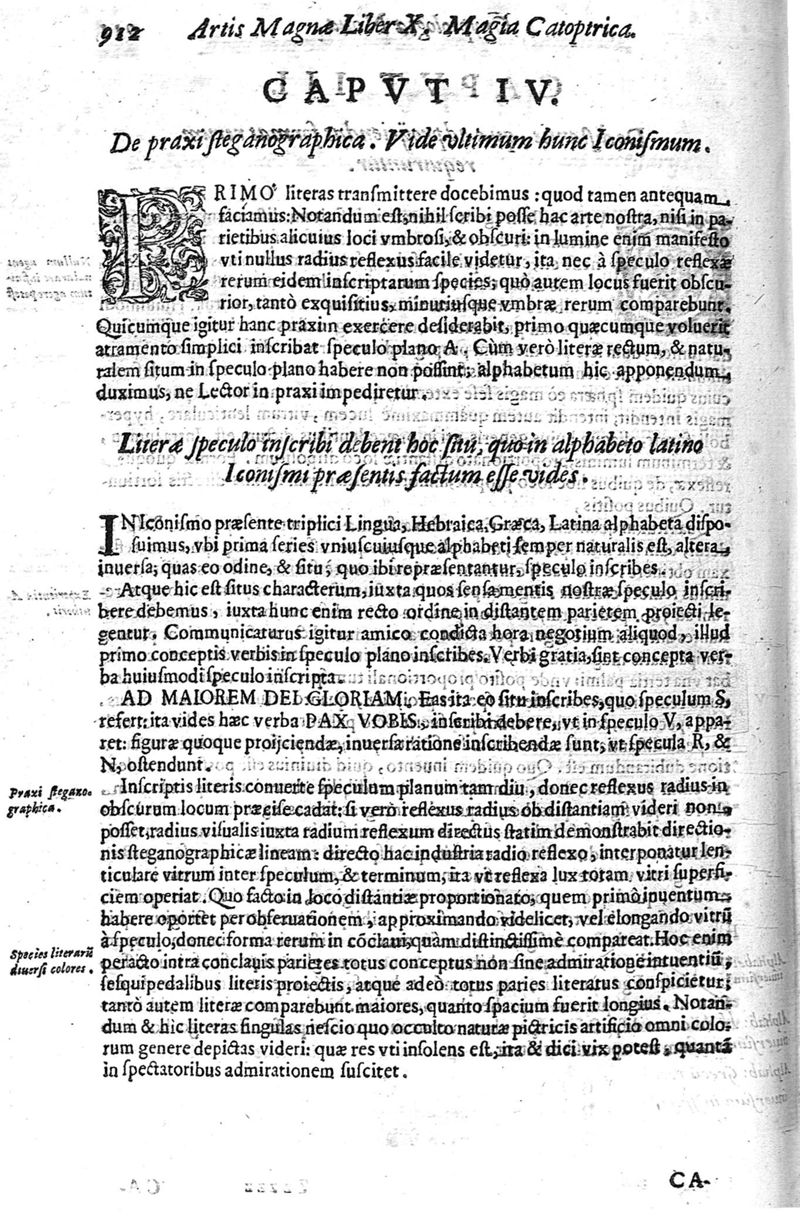 912 Artis Magnæ Liber X. Magia Catoptrica.
CAPVT IV.
De praxi steganographica. Vide vltimum hunc Iconismum.
PRIMO literas transmittere docebimus: quod tamen antequam
faciamus: Notandum est, nihil scribi posse hac arte nostra, nisi in pa-
rietibus alicuius loci vmbrosi, & obscuri: in lumine enim manifesto
vti nullus radius reflexus facile videtur, ita nec à speculo reflexæ
rerum eidem inscriptarum species; quò autem locus fuerit obscu-
rior, tantò exquisitius, minutiusque vmbræ rerum comparebunt.
Quicumque igitur hanc praxin exercere desiderabit, primo quæcumque voluerit
atramento simplici inscribat speculo plano A. Cùm verò literæ rectum, & natu-
ralem situm in speculo plano habere non possint; alphabetum hic apponendum
duximus, ne Lector in praxi impediretur.
Literæ speculo inscribi debent hoc situ, quo in alphabeto latino
Iconismi præsentis factum esse vides.
IN Iconismo præsente triplici Lingua, Hebraica, Græca, Latina alphabeta dispo-
suimus, vbi prima series vniuscuiusque alphabeti semper naturalis est, altera
inuersa; quas eo odine, & situ, quo ibi repræsentantur, speculo inscribes.
Atque hic est situs characterum, iuxta quos sensa mentis nostræ speculo inscri-
bere debemus, iuxta hunc enim recto ordine in distantem parietem proiecti le-
gentur. Communicaturus igitur amico condicta hora negotium aliquod, illud
primo conceptis verbis in speculo plano inscribes. Verbi gratia, sint concepta ver-
ba huiusmodi speculo inscripta.
AD MAIOREM DEI GLORIAM. Eas ita eo situ inscribes, quo speculum S,
refert: ita vides hæc verba PAX VOBIS, inscribi debere, vt in speculo V, appa-
ret: figuræ quoque proijciendæ, inuersa ratione inscribendæ sunt, vt specula R, &
N, ostendunt.
Praxi stegano-
graphica.
Inscriptis literis conuerte speculum planum tam diu, donec reflexus radius in
obscurum locum præcise cadat: si verò reflexus radius ob distantiam videri non
posset, radius visualis iuxta radium reflexum directus statim demonstrabit directio-
nis steganographicæ lineam: directo hac industria radio reflexo, interponatur len-
ticulare vitrum inter speculum, & terminum, ita vt reflexa lux totam vitri superfi-
ciem operiat. Quo facto in loco distantiæ proportionato, quem primò inuentum
habere oportet per obseruationem, approximando videlicet, vel elongando vitrū
à speculo, donec forma rerum in cōclaui, quàm distinctissimè compareat. Hoc enim
Species literarū
diuersi colores.
peracto intra conclauis parietes totus conceptus non sine admiratione intuentiū,
sesquipedalibus literis proiectis, atque adeò totus paries literatus conspicietur;
tantò autem literæ comparebunt maiores, quanto spacium fuerit longius. Notan-
dum & hic literas singulas nescio quo occulto naturæ pictricis artificio omni colo-
rum genere depictas videri: quæ res vti insolens est, ita & dici vix potest, quantā
in spectatoribus admirationem suscitet.
CA-